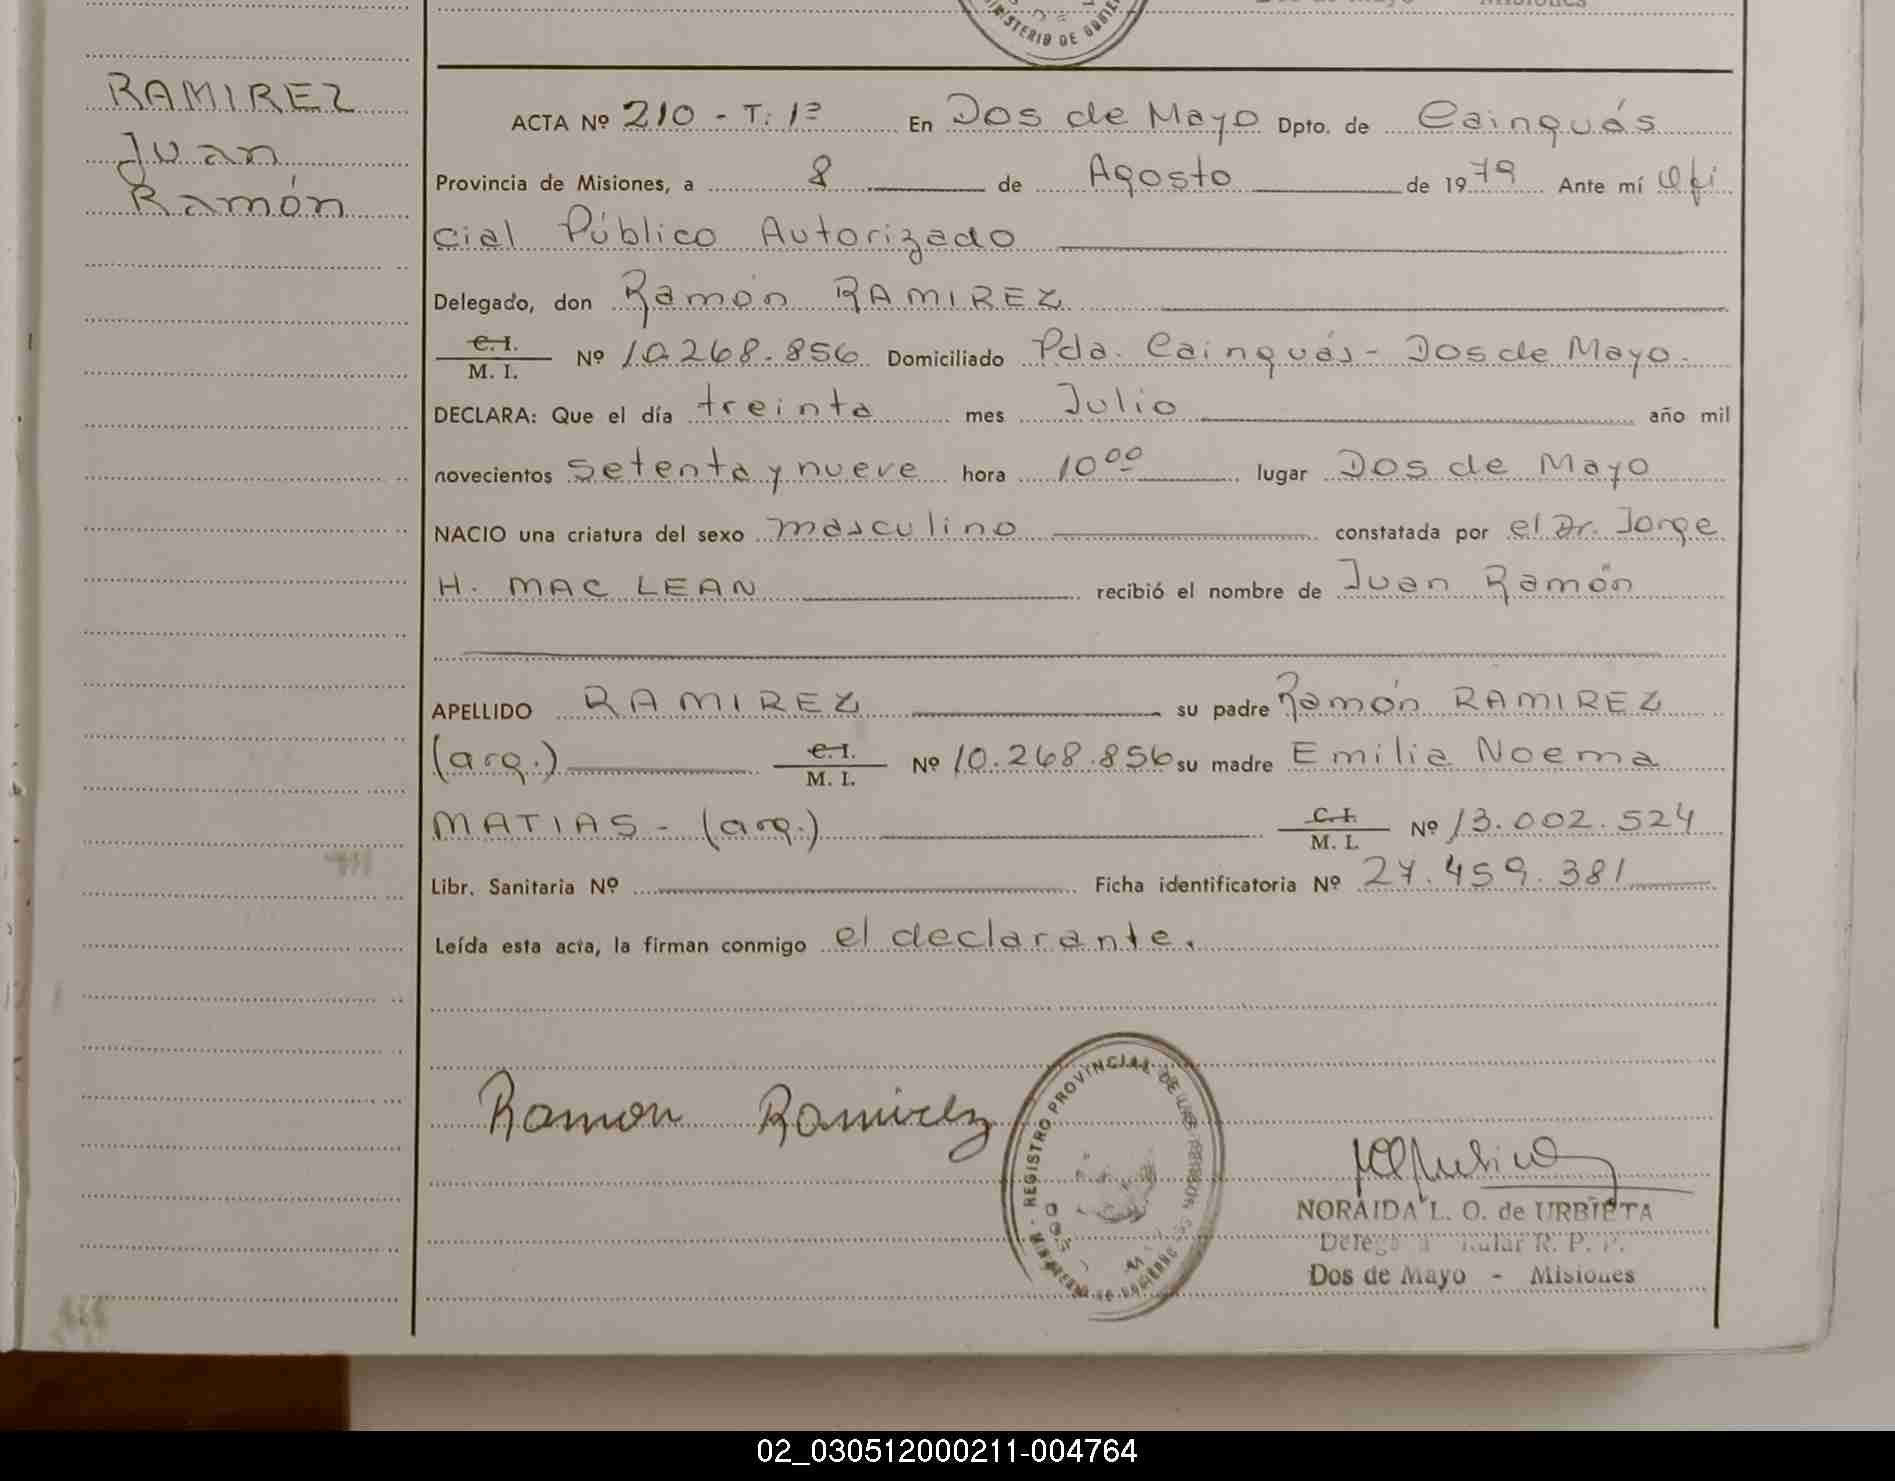 MINISTERIO DE GOBIE
Misiones
RAMIREZ
Juan
Ramón
ACTA Nº 210 - T: 1º En Dos de Mayo Dpto. de Cainguás
Provincia de Misiones, a 8 de Agosto de 1979 Ante mí Ofi
cial Público Autorizado
Delegado, don Ramón RAMIREZ
C. I. / M. I. Nº 10.268.856 Domiciliado Pda. Cainguás - Dos de Mayo.
DECLARA: Que el día treinta mes Julio año mil
novecientos setenta y nueve hora 10 00 lugar Dos de Mayo
NACIO una criatura del sexo masculino constatada por el Dr. Jorge
H. MAC LEAN recibió el nombre de Juan Ramón
APELLIDO RAMIREZ su padre Ramón RAMIREZ
(arg.) C. I. / M. I. Nº 10.268.856 su madre Emilia Noema
MATIAS - (arg.) C. I. / M. I. Nº 13.002.524
Libr. Sanitaria Nº Ficha identificatoria Nº 27.459.381
Leída esta acta, la firman conmigo el declarante.
Ramon Ramirez
REGISTRO PROVINCIAL DE LAS PERSONAS
MINISTERIO DE GOBIERNO
NORAIDA L. O. de URBIETA
R. P. P.
Dos de Mayo - Misiones
02_030512000211-004764